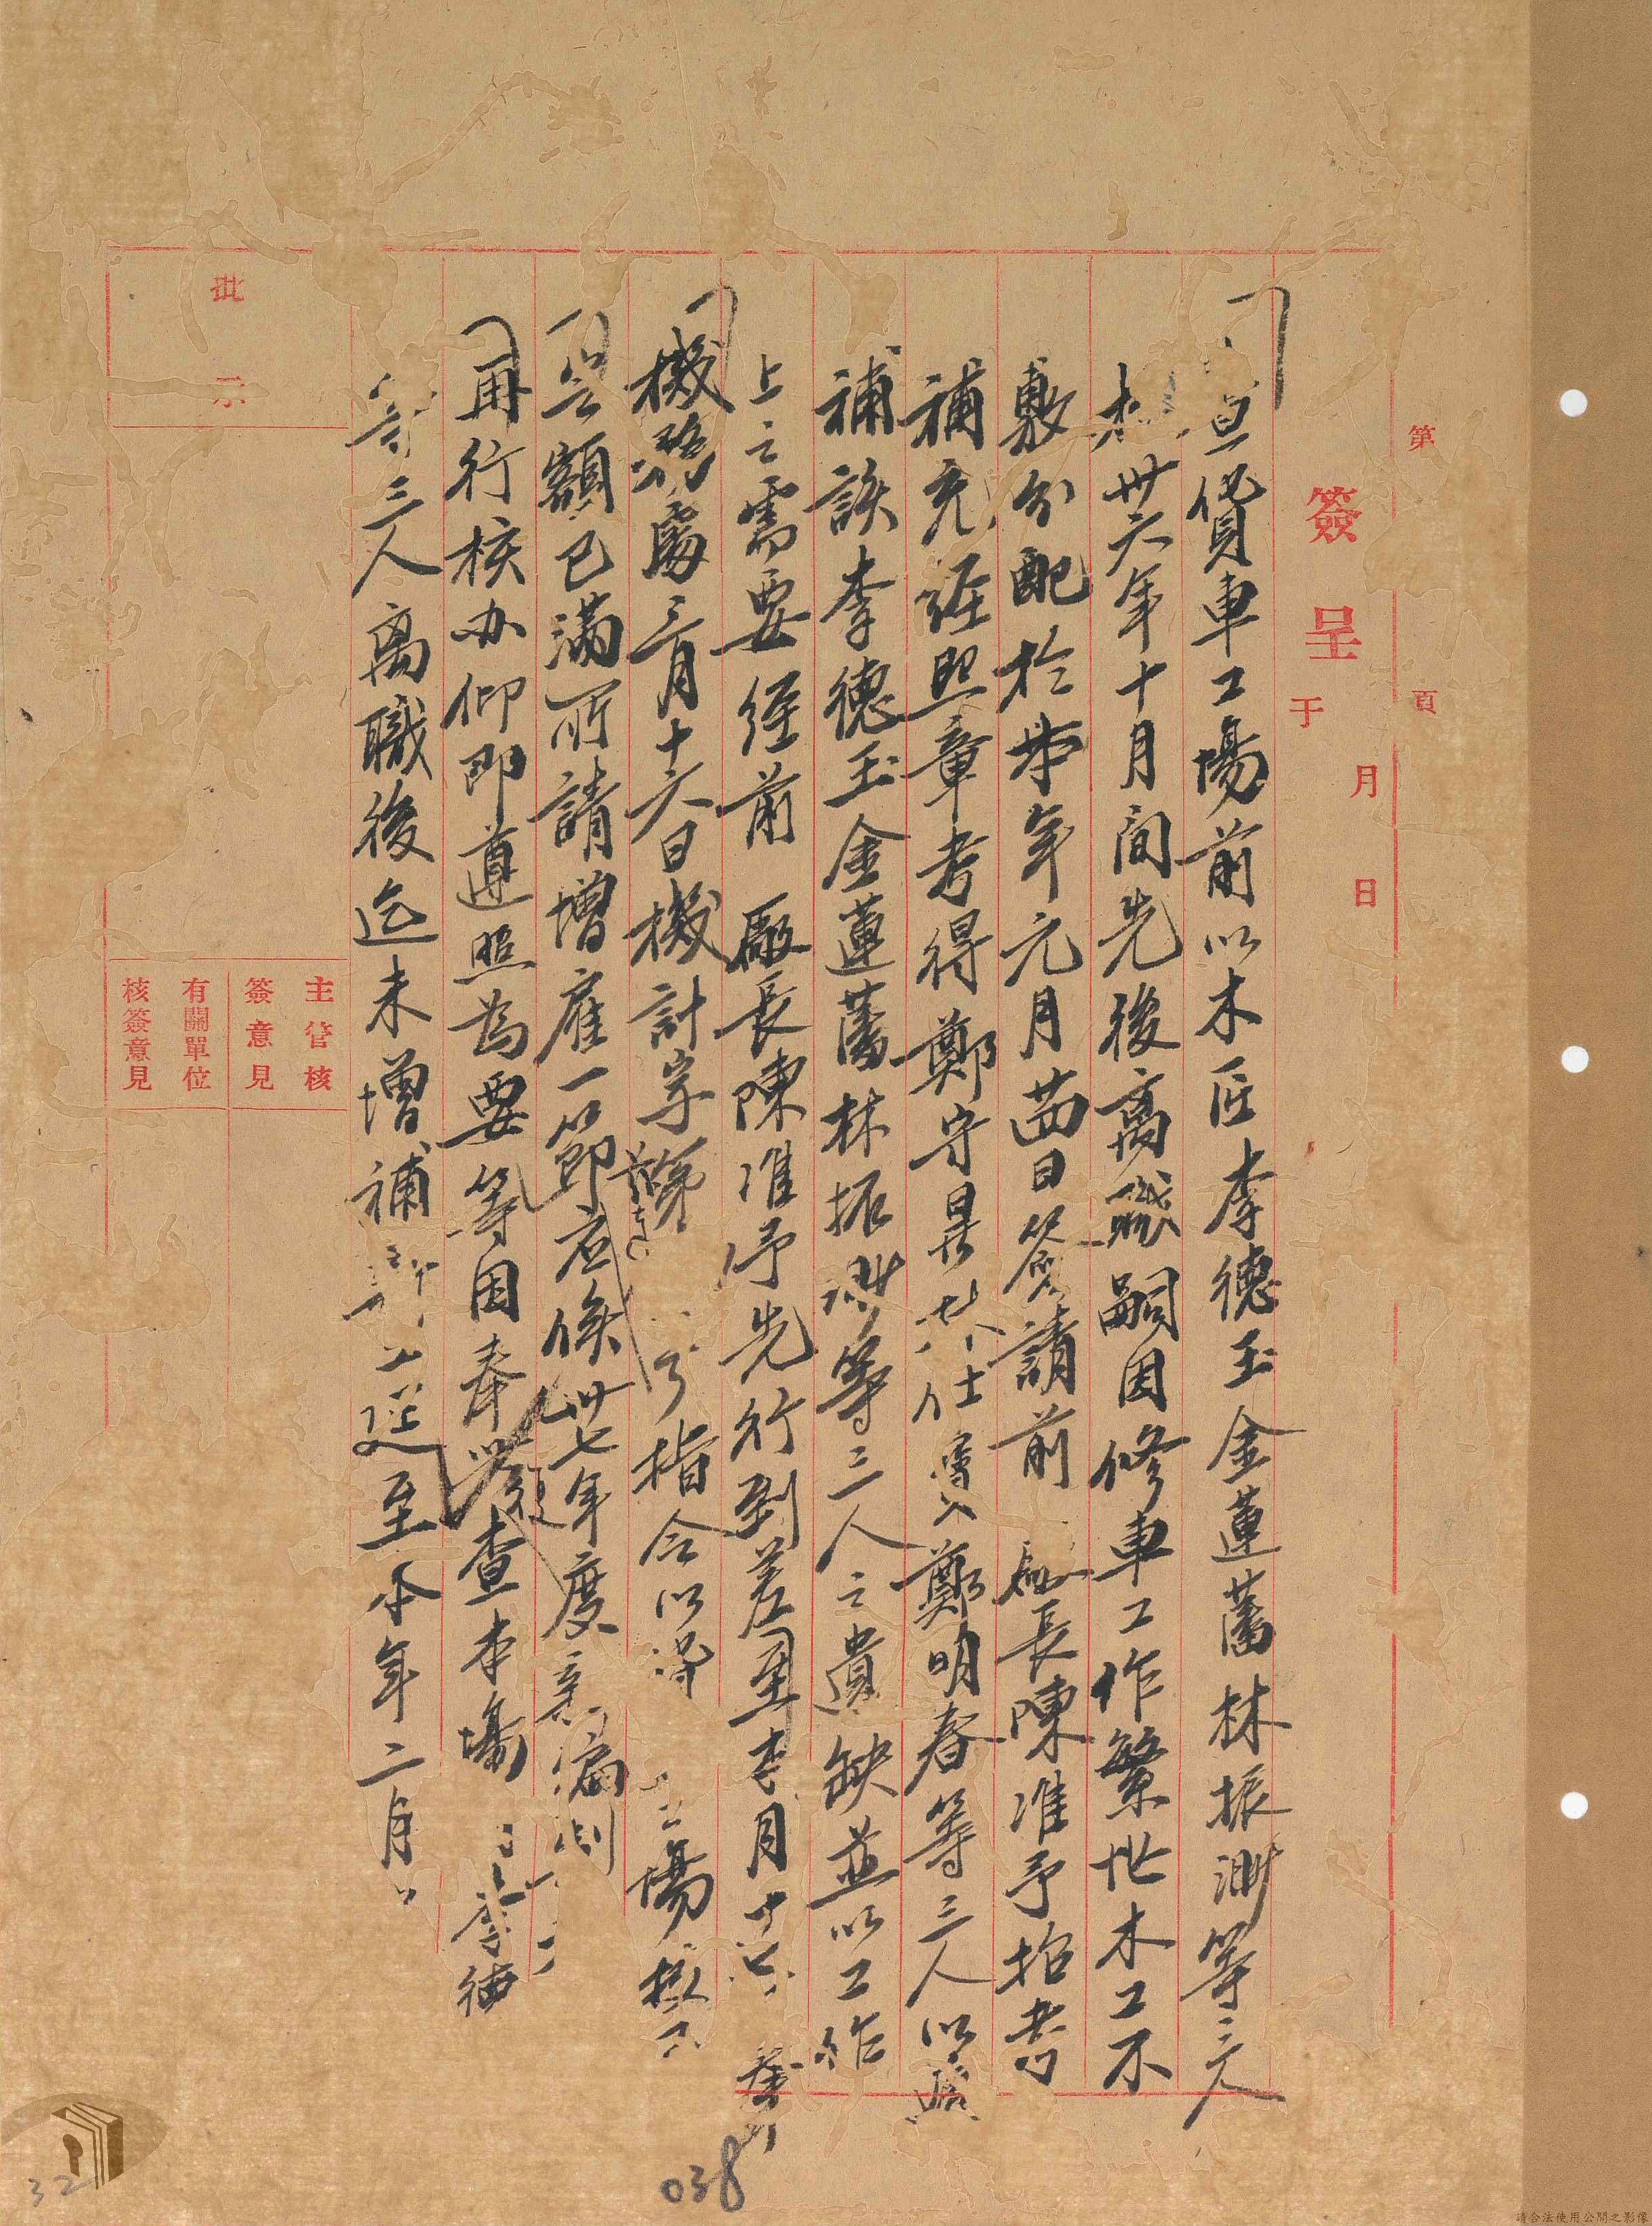 第　頁
簽呈　于　月　日
查貨車工場前以木匠李德玉金蓮藩林振渺等三人
於卅六年十月間先後离職嗣因修車工作繁忙木工不
敷分配於本年元月廿四日簽請前　處長陳准予招考
補充經照章考得鄭守昇　鄭明春等三人以
補該李德玉金蓮藩林振渺等三人之遺缺並以工作
上之需要經前　廠長陳准予先行到差至本月十六　奉
機務處三月十六日機計字第　号指令以該　場
員額已滿所請增雇一節应俟卅七年度
再行核办仰即遵照為要等因奉此查本場　李德
等三人离職後迄未增補　延至本年二月
批示
主管核簽意見
有關單位核簽意見
038
32
請合法使用公開之影像